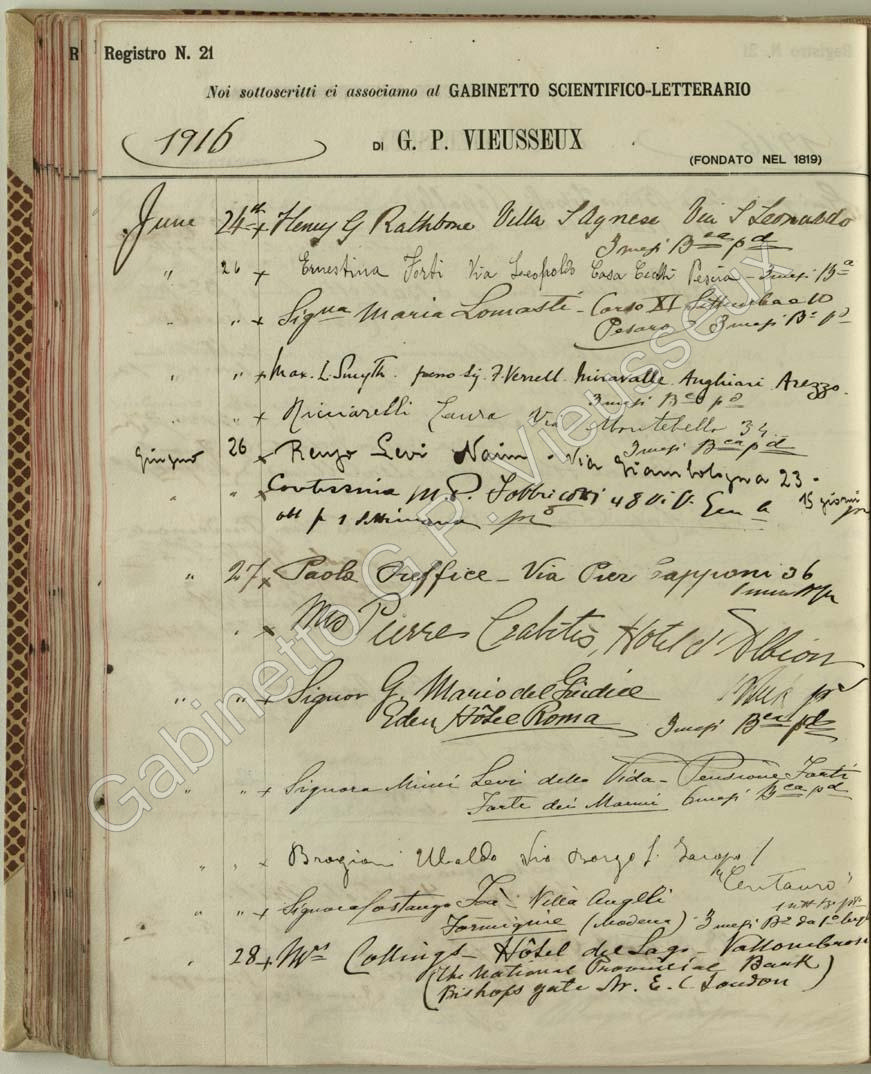 R Registro N. 21
Noi sottoscritti ci associamo al GABINETTO SCIENTIFICO-LETTERARIO
1916
DI G. P. VIEUSSEUX
(FONDATO NEL 1819)
June 24 x Henry G Rathbone Villa S Agnese Via S Leonardo
3 mesi Bca pd
" 26 x Ernestina Forti Via Leopoldo Casa Pescia - 3 mesi Ba
" " x Signa Maria Lomasti - Corso XI Settembre 10
Pesaro 3 mesi Ba pd
" " x Max. L. Smyth. Sig. F. Verrell. Miravalle Anghiari Arezzo.
3 mesi Bca pd
" " x Ricciarelli Laura Via Montebello 34
3 mesi Bca pd
Giugno 26 x Renzo Levi Naim - Via Giambologna 23 -
" " x Contessina M. P. Fabbricotti 48 15 giorni
27 x Paolo Orefice - Via Pier Capponi 36
" x Mrs Pierre Crabitès, Hotel d'Albion
" " x Signor G. Mario del Giudice
Eden Hôtel Roma 3 mesi Bca pd
" " x Signora Mimi Levi della Vida - Pensione Forti
Forte dei Marmi 6 mesi Bca pd
" " x Ubaldo Via Borgo S. Jacopo 1
"Centauro"
" " x Signora Costanza Foà - Villa Angeli
Formigine (Modena) 3 mesi
" 28 x Mrs Collings - Hôtel du Lago - Vallombrosa
(The National Provincial Bank
Bishopsgate Str. E. C. London)
Gabinetto G.P. Vieusseux